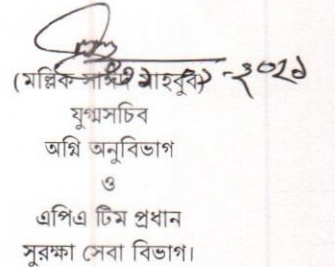 (মল্লিক সাঈদ মাহবুব)
যুগ্মসচিব
অগ্নি অনুবিভাগ
ও
এপিএ টিম প্রধান
সুরক্ষা সেবা বিভাগ।